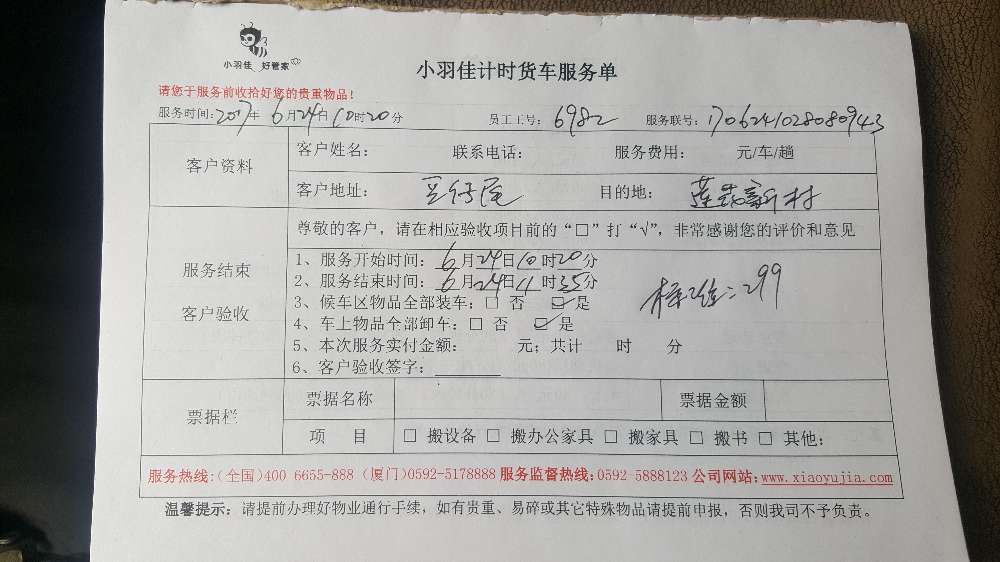 小羽佳 好管家
小羽佳计时货车服务单
请您于服务前收拾好您的贵重物品！
服务时间：2017年 6月24日10时20分 员工工号：6982 服务联号：170624102808943
客户资料
客户姓名： 联系电话： 服务费用： 元/车/趟
客户地址： 后 目的地： 莲 新村
服务结束
客户验收
尊敬的客户，请在相应验收项目前的“□”打“√”，非常感谢您的评价和意见
1、服务开始时间：6月24日10时20分
2、服务结束时间：6月24日11时35分
3、候车区物品全部装车：□ 否 ☑ 是
标准：299
4、车上物品全部卸车：□ 否 ☑ 是
5、本次服务实付金额： 元；共计 时 分
6、客户验收签字：
票据栏
票据名称 票据金额
项 目 □ 搬设备 □ 搬办公家具 □ 搬家具 □ 搬书 □ 其他：
服务热线：(全国)400 6655-888 (厦门)0592-5178888 服务监督热线：0592-5888123 公司网站：www.xiaoyujia.com
温馨提示：请提前办理好物业通行手续，如有贵重、易碎或其它特殊物品请提前申报，否则我司不予负责。